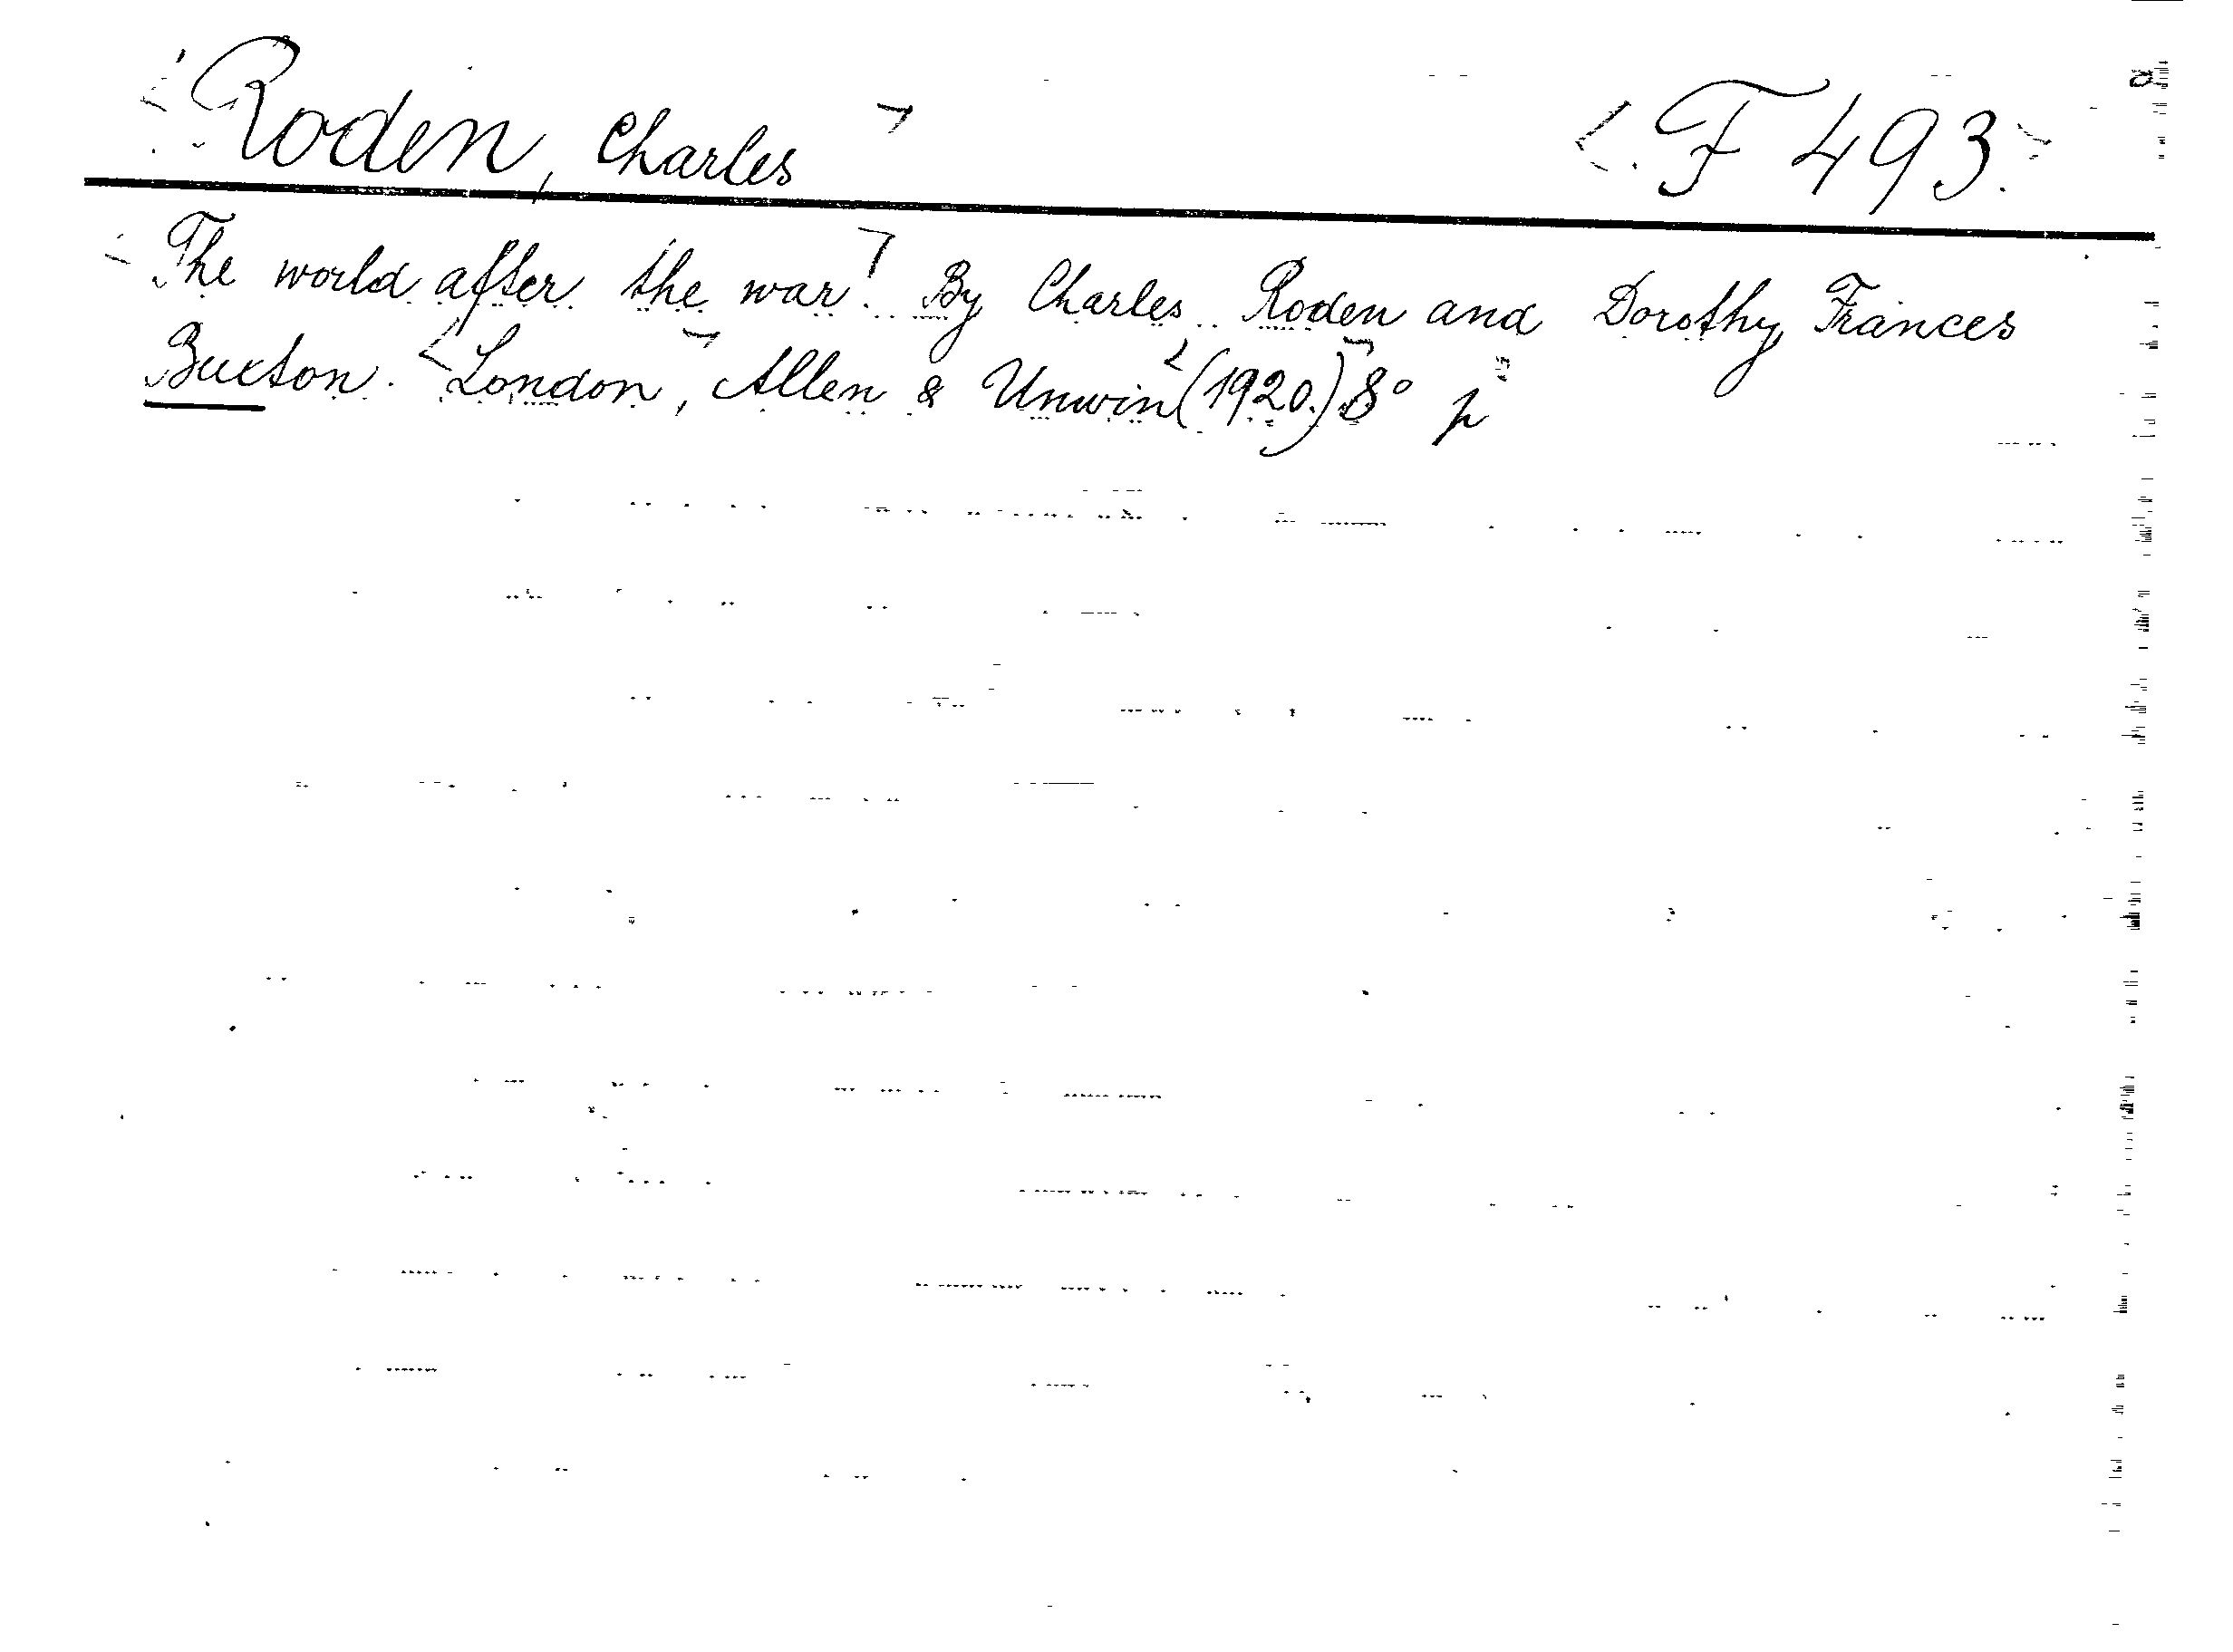 Roden, Charles F 493.
The world after the war. By Charles Roden and Dorothy Frances
Buxton. London, Allen & Unwin (1920.) 8° p